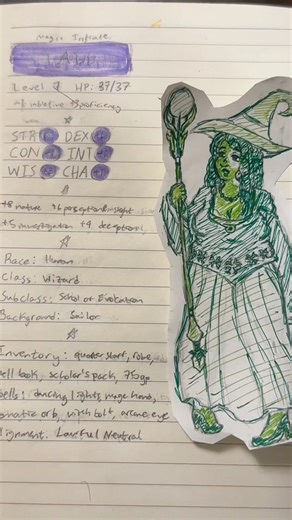 Magic Initiate
Level 7 HP: 37/37
initiative +3 proficiency
STR DEX
CON INT
WIS CHA
+8 nature +6 perception & insight
+5 investigation +4 deception
Race: Human
Class: Wizard
Subclass: School of Evocation
Background: Sailor
Inventory: quater staff, robe,
ell book, scholar's pack,
pells: dancing lights, mage hand,
omatic orb, witch bolt, arcane eye
lignment: Lawful Neutral